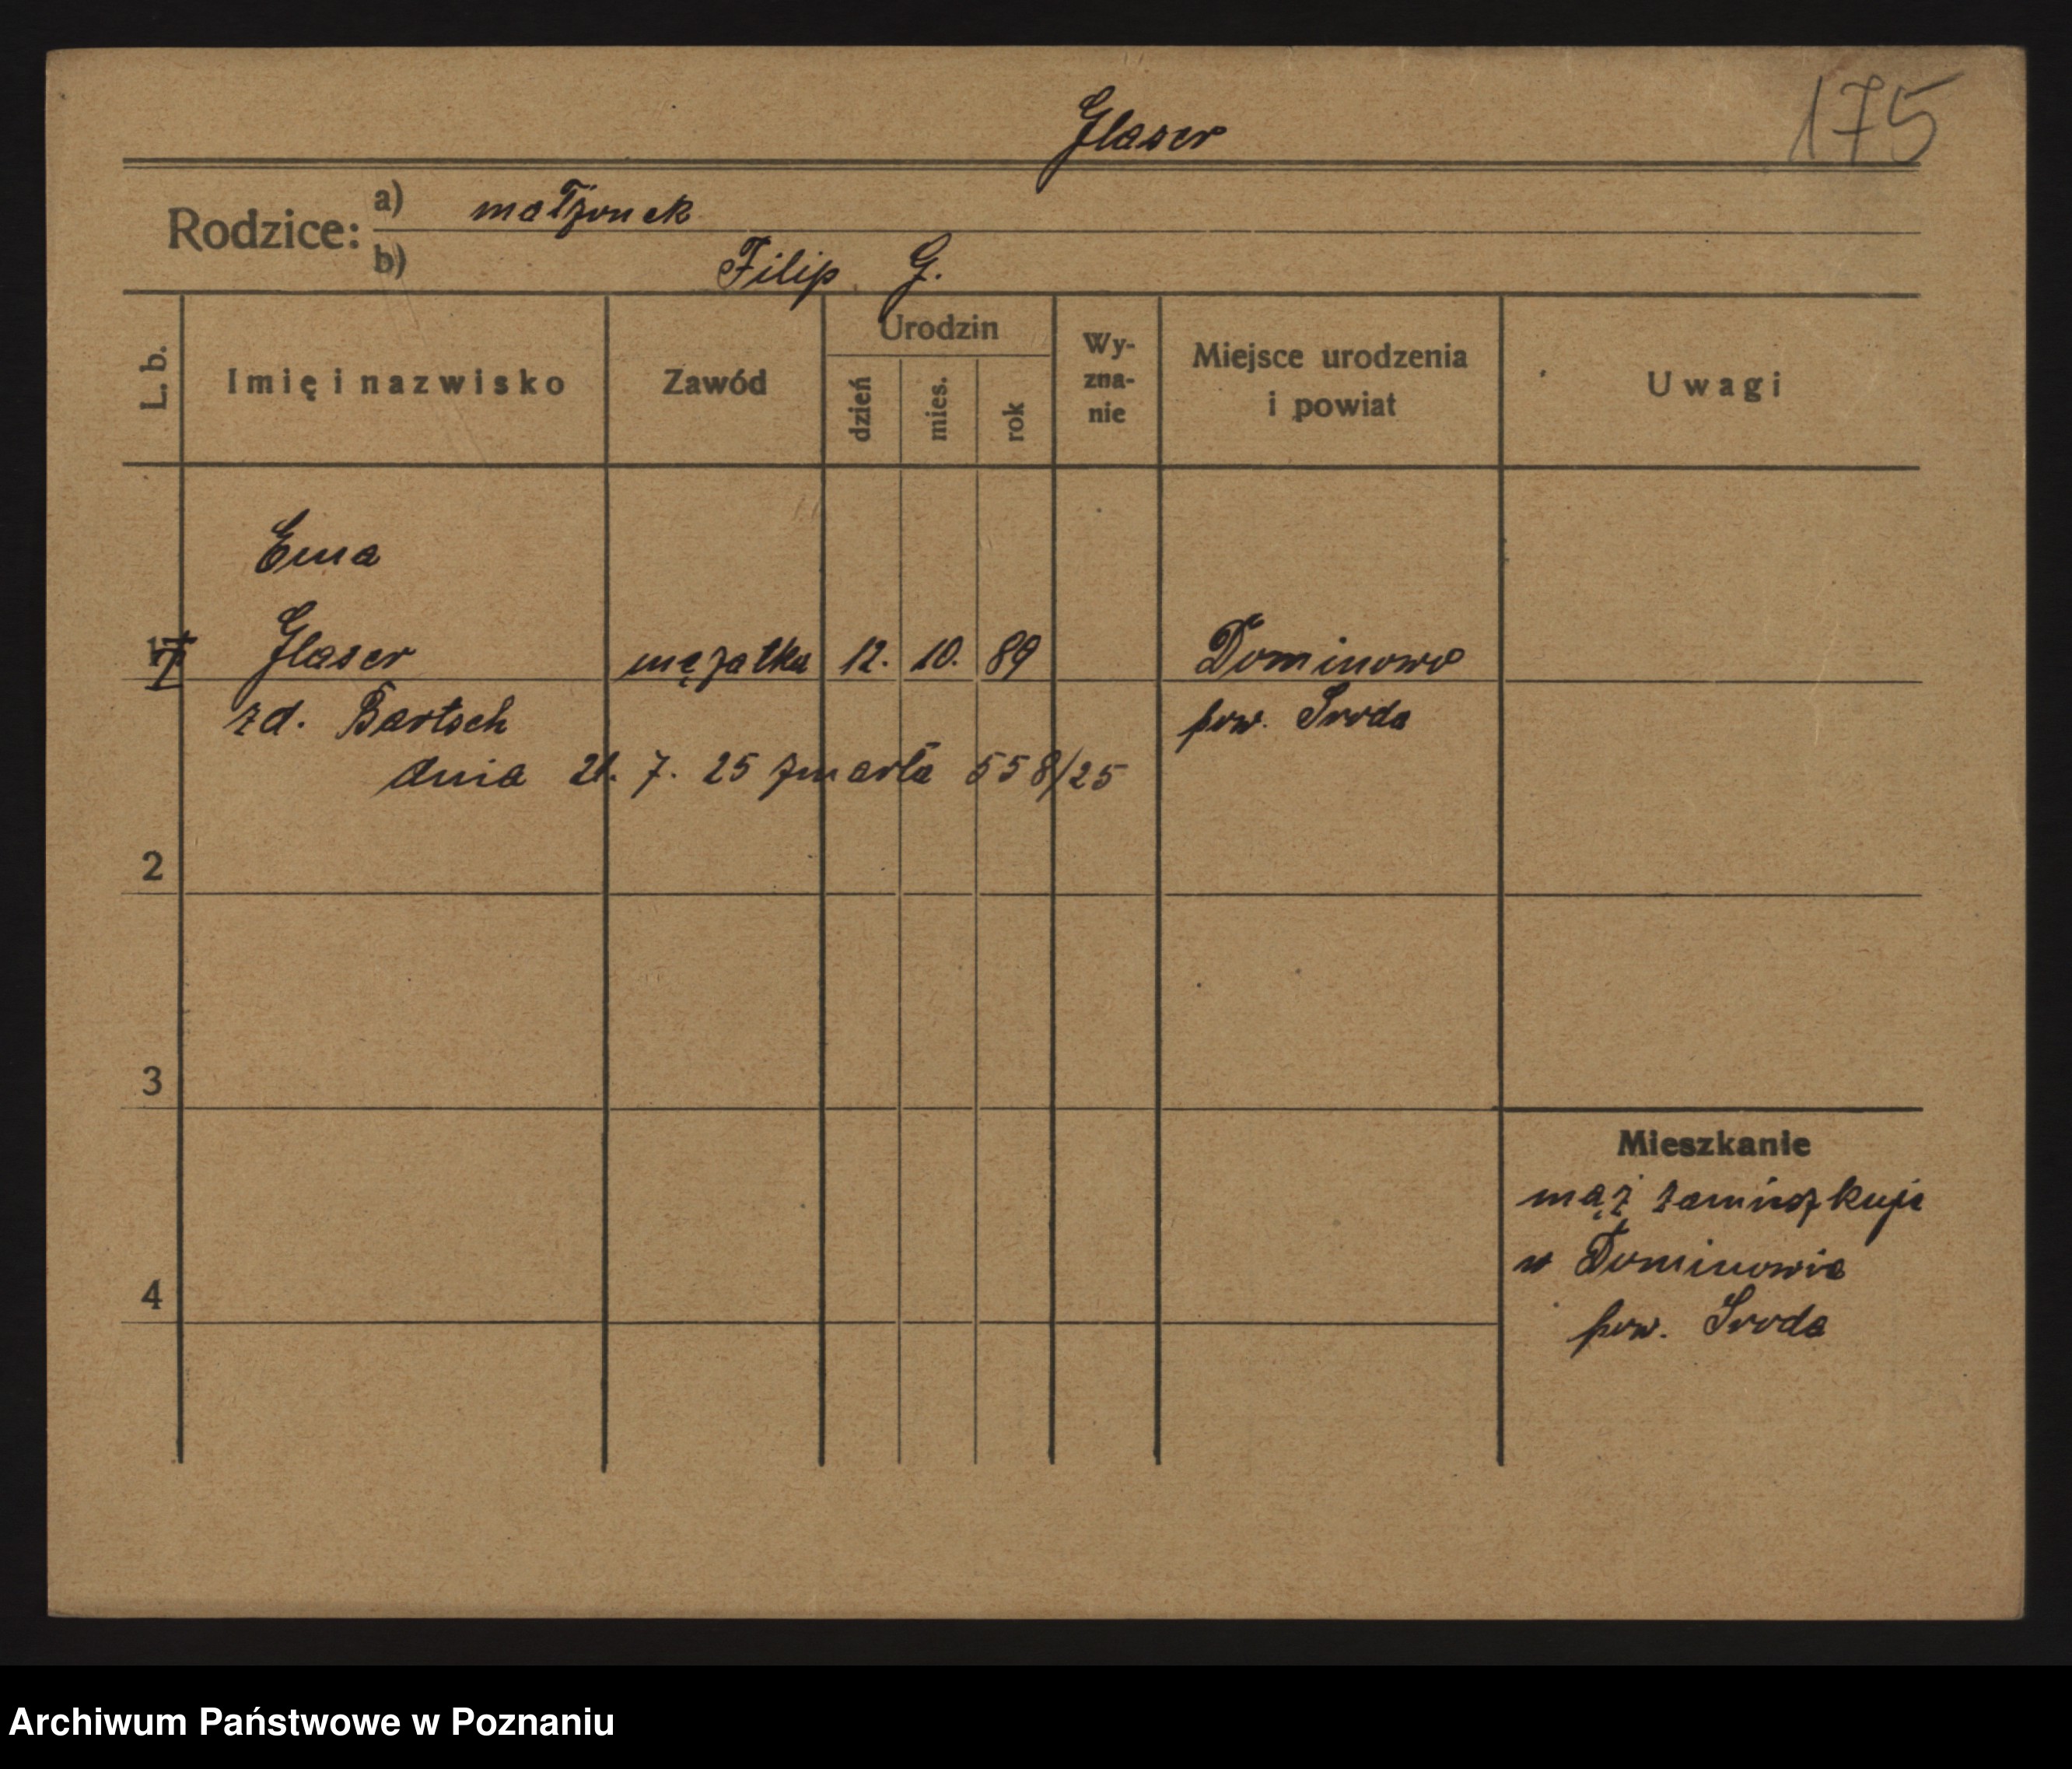 Glaser
175
Rodzice: a) małżonek
b) Filip G.
L. b.
Imię i nazwisko
Zawód
Urodzin
dzień
mies.
rok
Wy-
zna-
nie
Miejsce urodzenia
i powiat
Uwagi
Ema
1 Glaser mężatka 12. 10. 89 Dominowo
zd. Bartsch pow. Sroda
dnia 21. 7. 25 zmarła 558/25
2
3
4
Mieszkanie
mąż zamieszkuje
w Dominowie
pow. Sroda
Archiwum Państwowe w Poznaniu